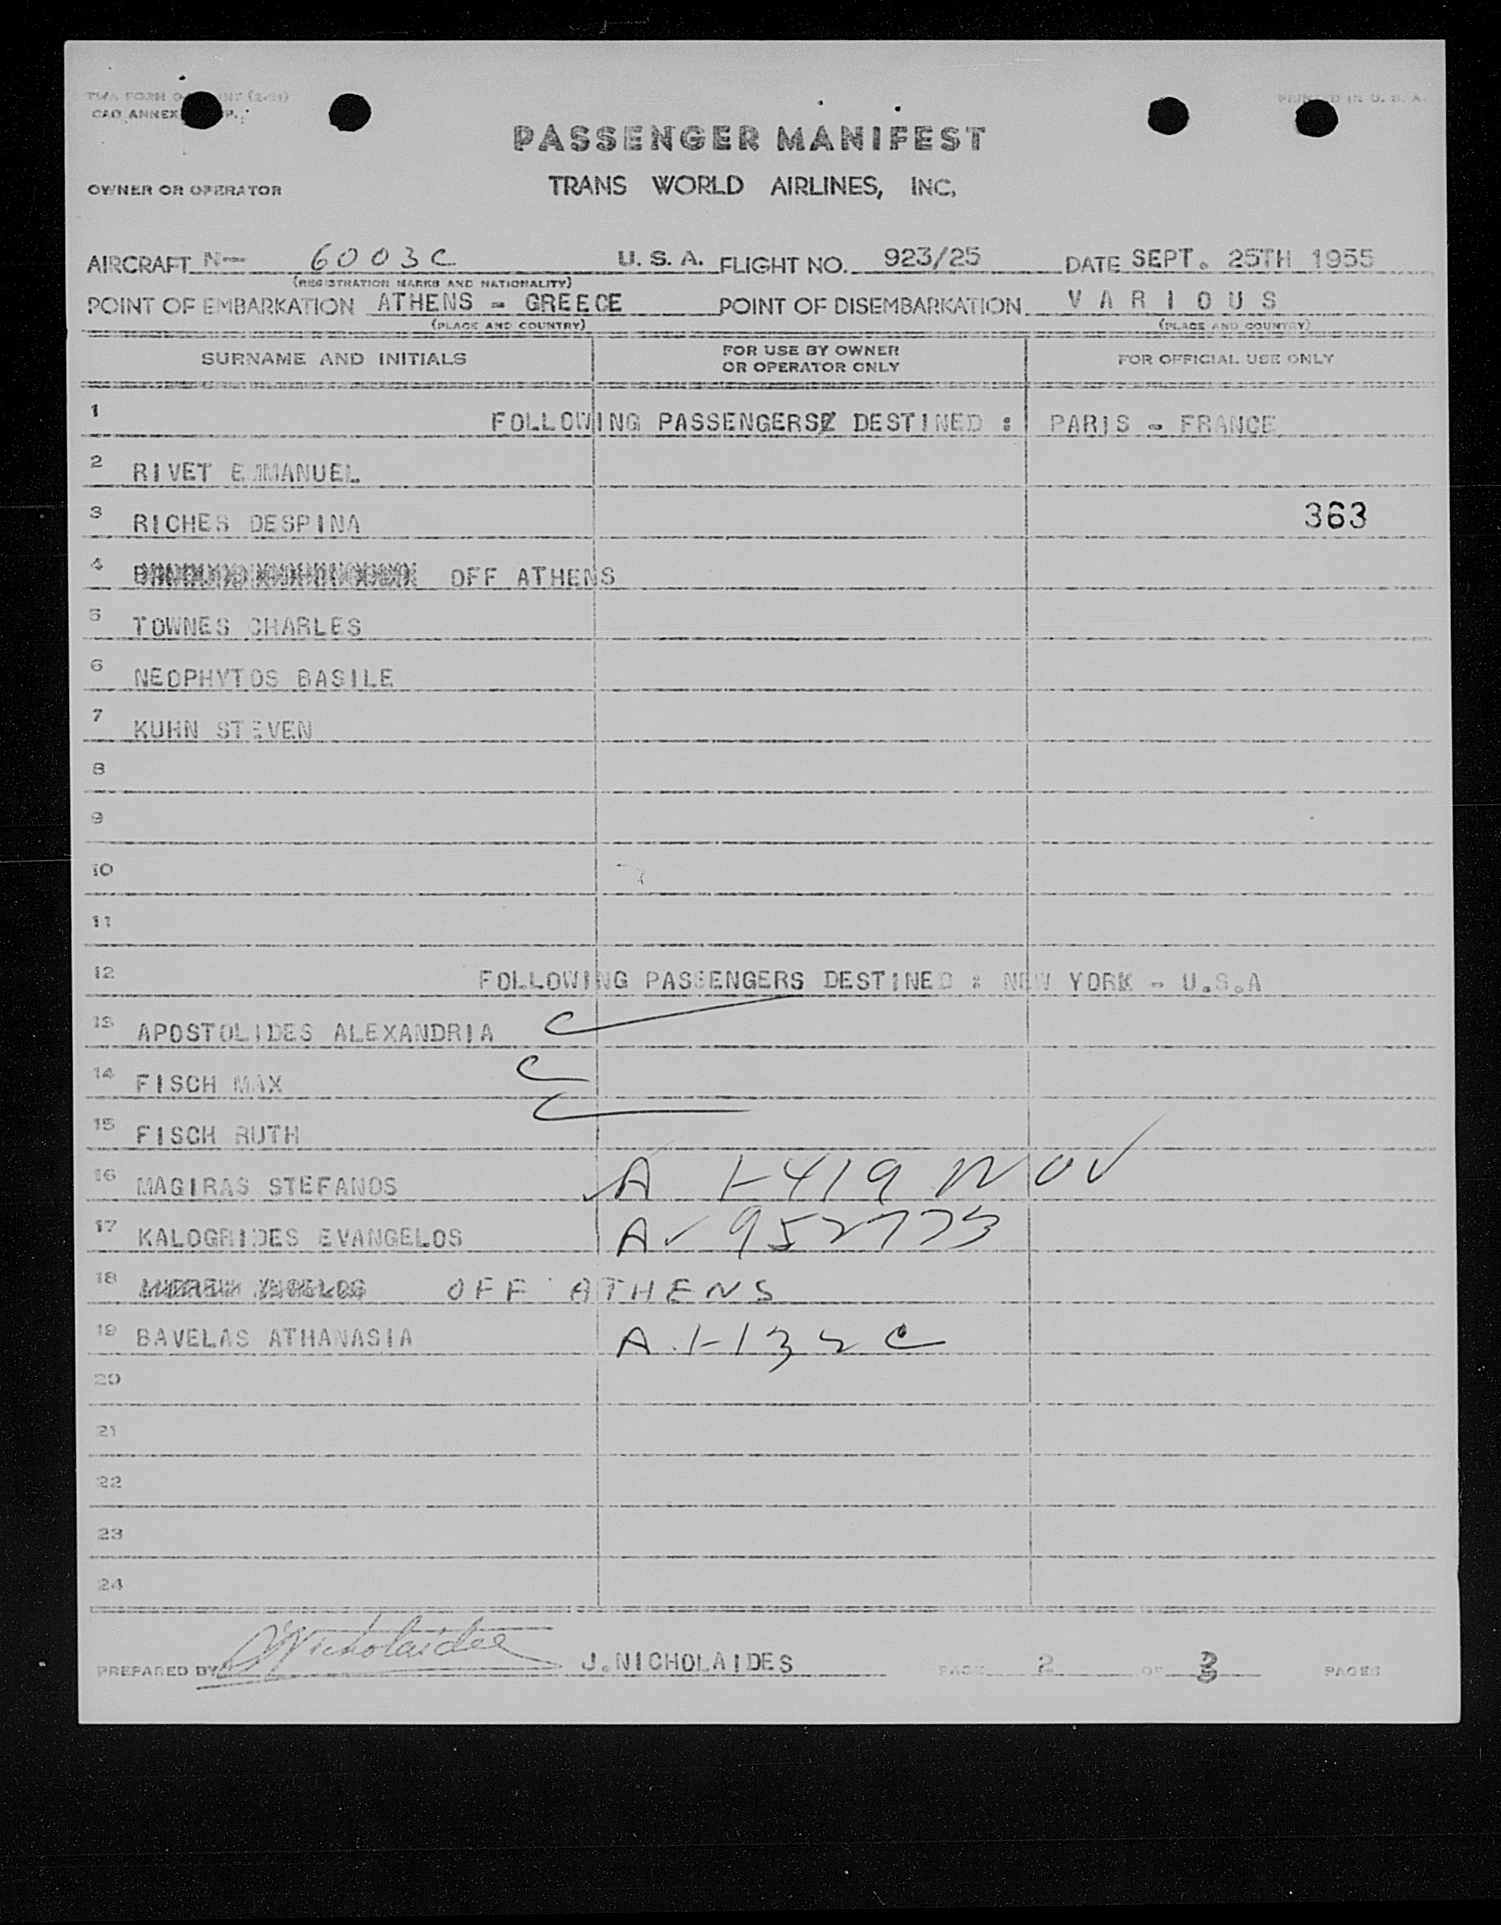 PRINTED IN U. S. A.
CAO ANNEX
PASSENGER MANIFEST
OWNER OR OPERATOR TRANS WORLD AIRLINES, INC.
AIRCRAFT N- 6003C U. S. A. FLIGHT NO. 923/25 DATE SEPT. 25TH 1955
(REGISTRATION MARKS AND NATIONALITY)
POINT OF EMBARKATION ATHENS - GREECE POINT OF DISEMBARKATION VARIOUS
(PLACE AND COUNTRY) (PLACE AND COUNTRY)
SURNAME AND INITIALS FOR USE BY OWNER OR OPERATOR ONLY FOR OFFICIAL USE ONLY
1 FOLLOWING PASSENGERS DESTINED : PARIS - FRANCE
2 RIVET EMMANUEL
3 RICHES DESPINA 363
4 OFF ATHENS
5 TOWNES CHARLES
6 NEOPHYTOS BASILE
7 KUHN STEVEN
8
9
10
11
12 FOLLOWING PASSENGERS DESTINED : NEW YORK - U.S.A
13 APOSTOLIDES ALEXANDRIA C
14 FISCH MAX C
15 FISCH RUTH C
16 MAGIRAS STEFANOS A 1-419 NOV
17 KALOGRIDES EVANGELOS A
18 OFF ATHENS
19 BAVELAS ATHANASIA A
20
21
22
23
24
PREPARED BY J Nicholaides J.NICHOLAIDES PAGE 2 OF 3 PAGES